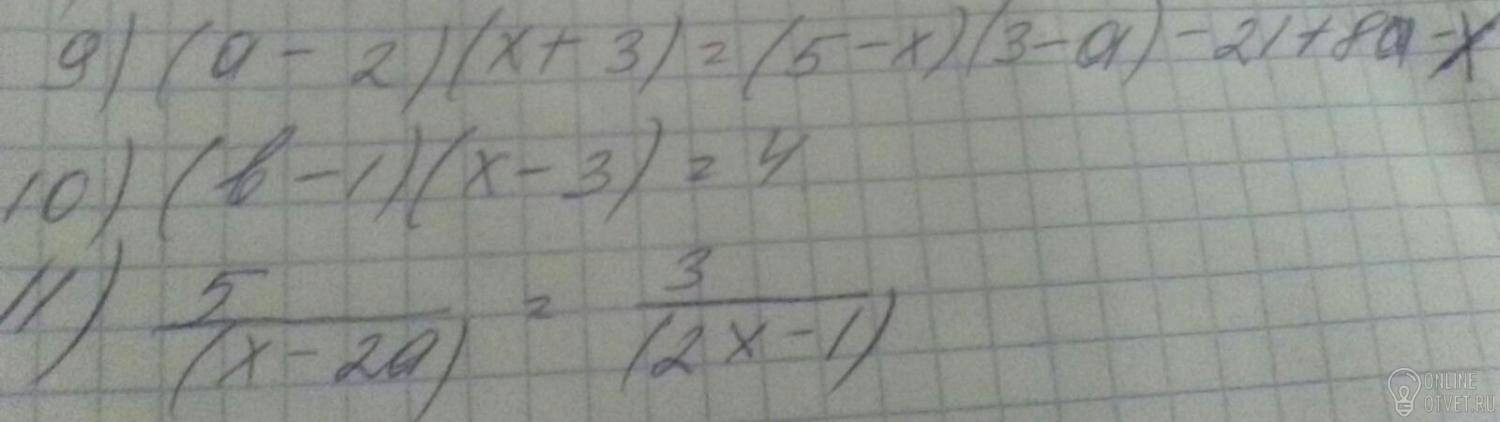 9) (a - 2)(x + 3) = (5 - x)(3 - a) - 21 + 8a - x
10) (b - 1)(x - 3) = 4
11) 5/(x - 2a) = 3/(2x - 1)
ONLINE
OTVET.RU